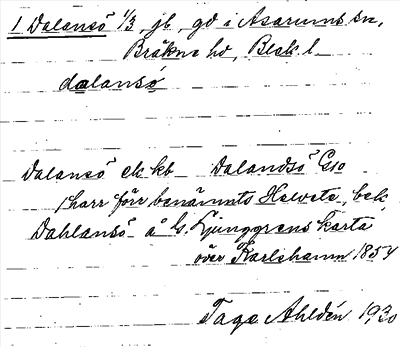 1 Dalansö 1/3, jb, gd i Asarums sn,
Bräkne hd, Blek. l.
dalansö
Dalansö ek kb Dalandsö G10
har förr benämnts Helvete, bek.
Dahlansö å G. Ljunggrens karta
över Karlshamn 1854
Tage Ahldén 1930